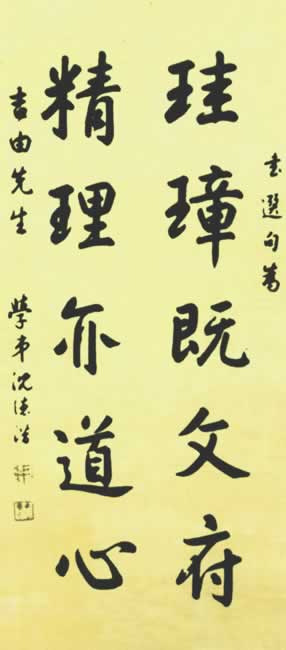 書選句為
珪璋既文府
精理亦道心
吉由先生 學弟沈德